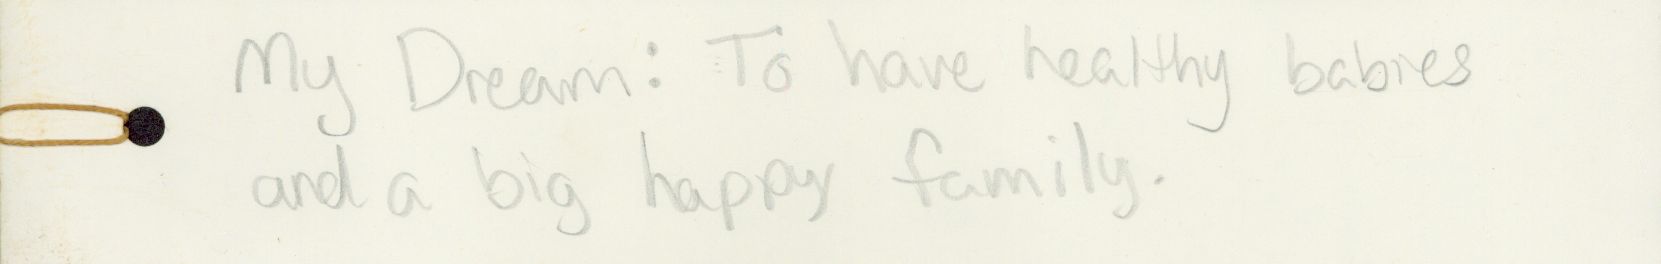 My Dream: To have healthy babies
and a big happy family.